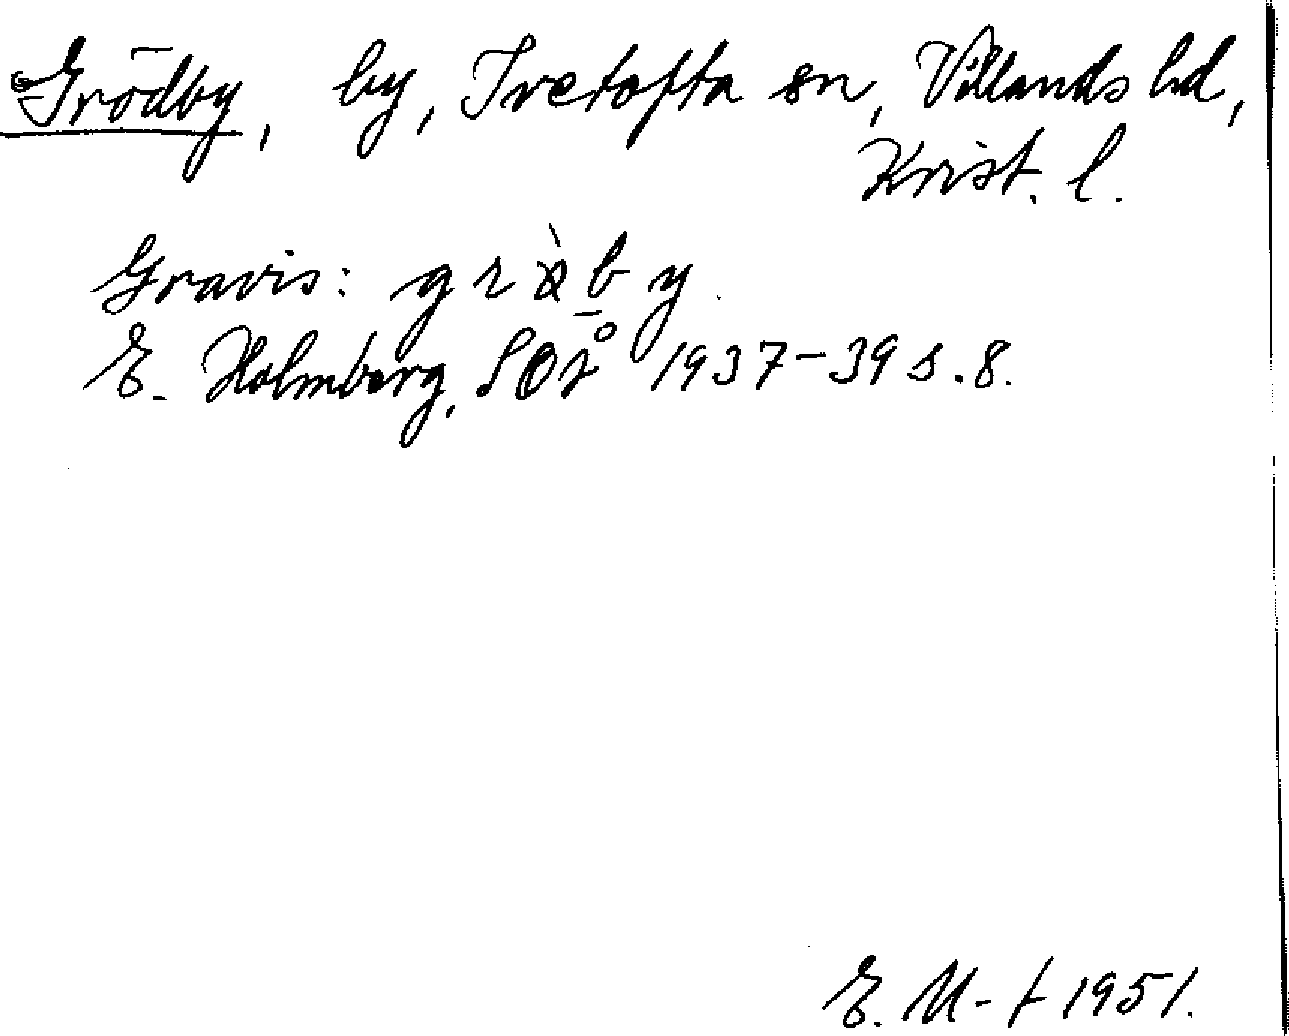 Grödby, by, Ivetofta sn, Villands hd,
Krist. l.
Gravis: g r ö̀ b y
E. Holmberg, SOÅ 1937-39 s. 8.
E. M-t 1951.